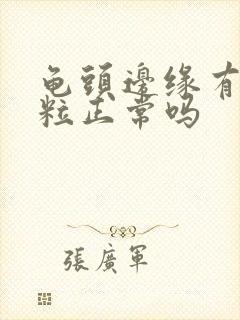 龟頭邊缘有
粒正常吗
張廣軍